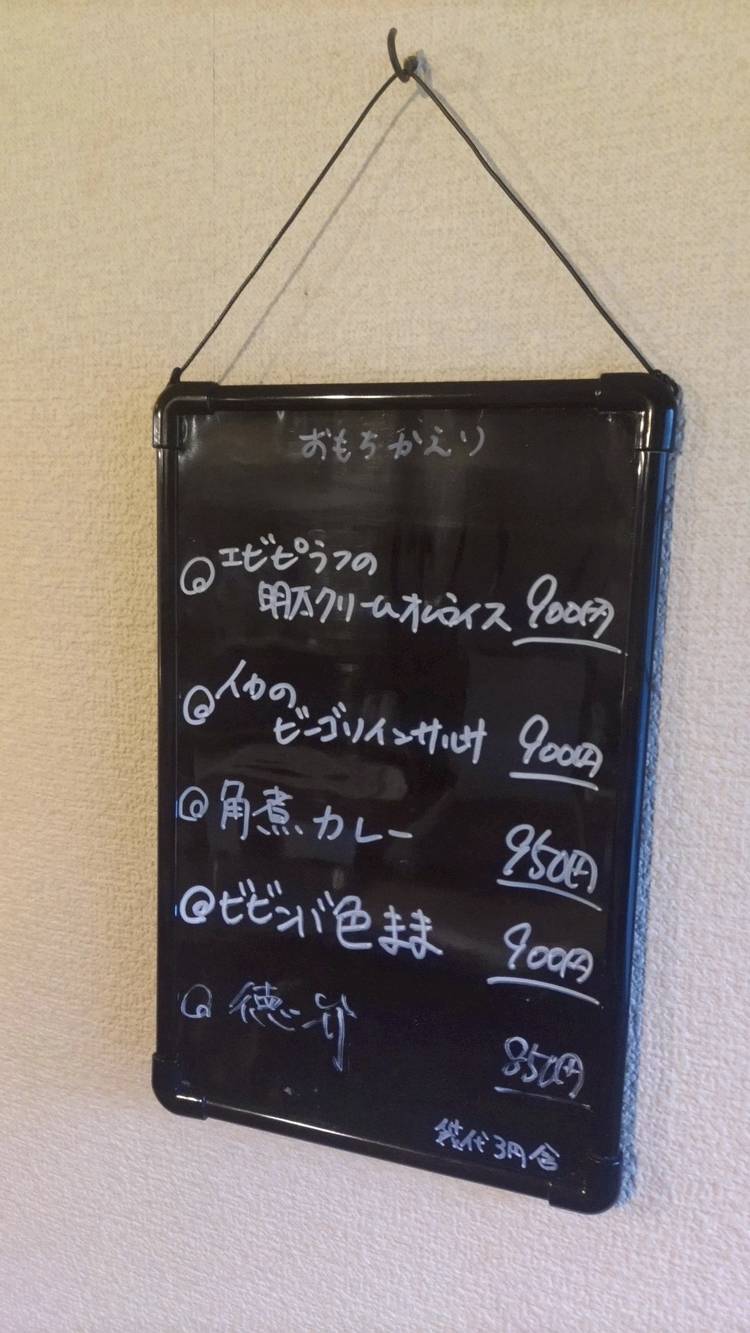 おもちかえり
エビピラフの
明太クリームオムライス 900円
イカの
ビーゴリインサルサ 900円
角煮カレー 950円
ビビンバ色まま 900円
徳弁 850円
袋代3円含